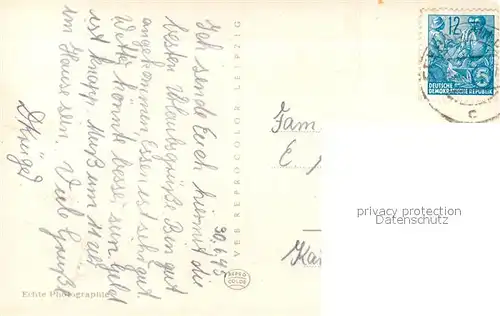 30.6.45
Ich sende Euch hiermit die
besten Urlaubsgrüße. Bin gut
angekommen, Essen ist sehr gut.
Wetter könnte besser sein. Geld
ist knapp. Muß um 11 Uhr
im Haus sein. Viele Grüße
VEB REPROCOLOR LEIPZIG
REPRO
COLOR
Echte Photographie
12
DEUTSCHE
DEMOKRATISCHE REPUBLIK
c
Fam
E.
privacy protection
Datenschutz